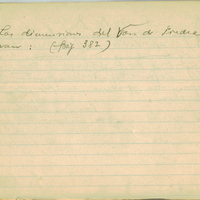 Las dimensiones del Van de
van : (pág 382)